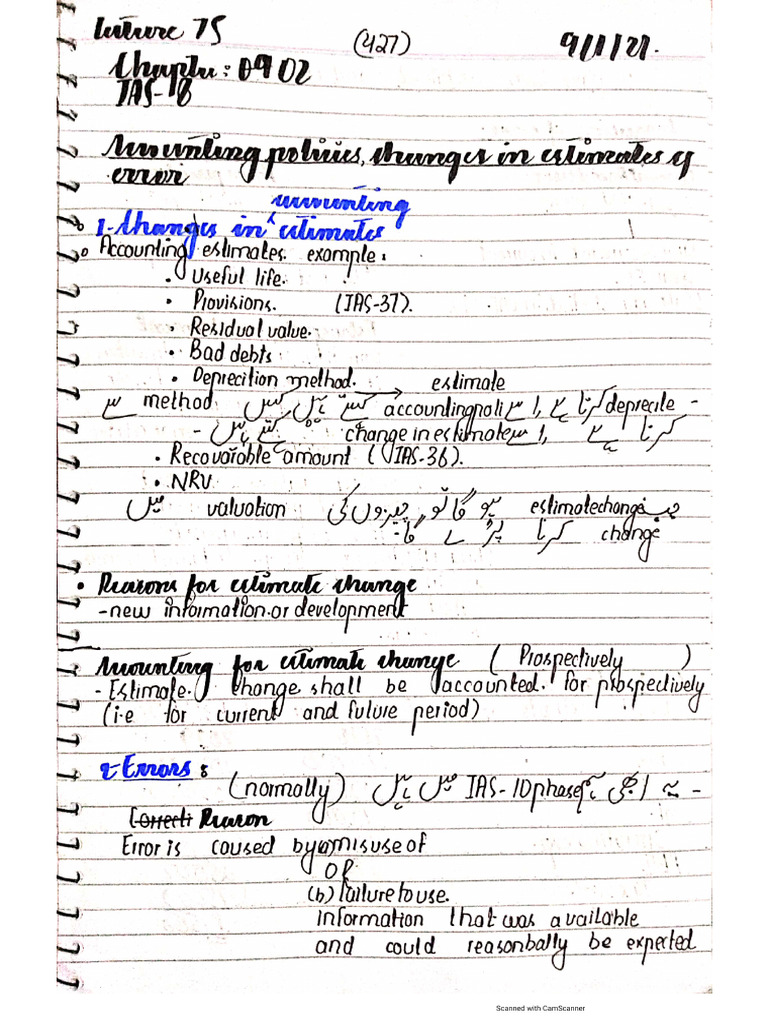 Lecture 75 (427) 9/1/21.
Chapter: 09 02
IAS-18
Accounting policies, changes in estimates &
error
accounting
1- Changes in ^ estimates
Accounting estimates. example:
• Useful life.
• Provisions. (IAS-37).
• Residual value.
• Bad debts
• Deprecition method. → estimate
method سے accounting poli کرتا ہے, اسے deprecite -
کرتا ہے change in estimate اسے کہتے ہیں -
• Recovarable amount (IAS-36).
• NRV
جب estimate change ہو گا تو, چیزوں کی valuation میں
change کرنا پڑے گا -
• Reasons for estimate change
- new information or development
Accounting for estimate change (Prospectively)
- Estimate. change shall be accounted. for prospectively
(i.e for current and future period)
2- Errors :
(normally) یہ ابھی ہم IAS-10 phase میں ہیں -
Correcti Reason
Error is caused by (a) misuse of
OR
(b) failure to use.
information that was available
and could reasonbally be expected
Scanned with CamScanner